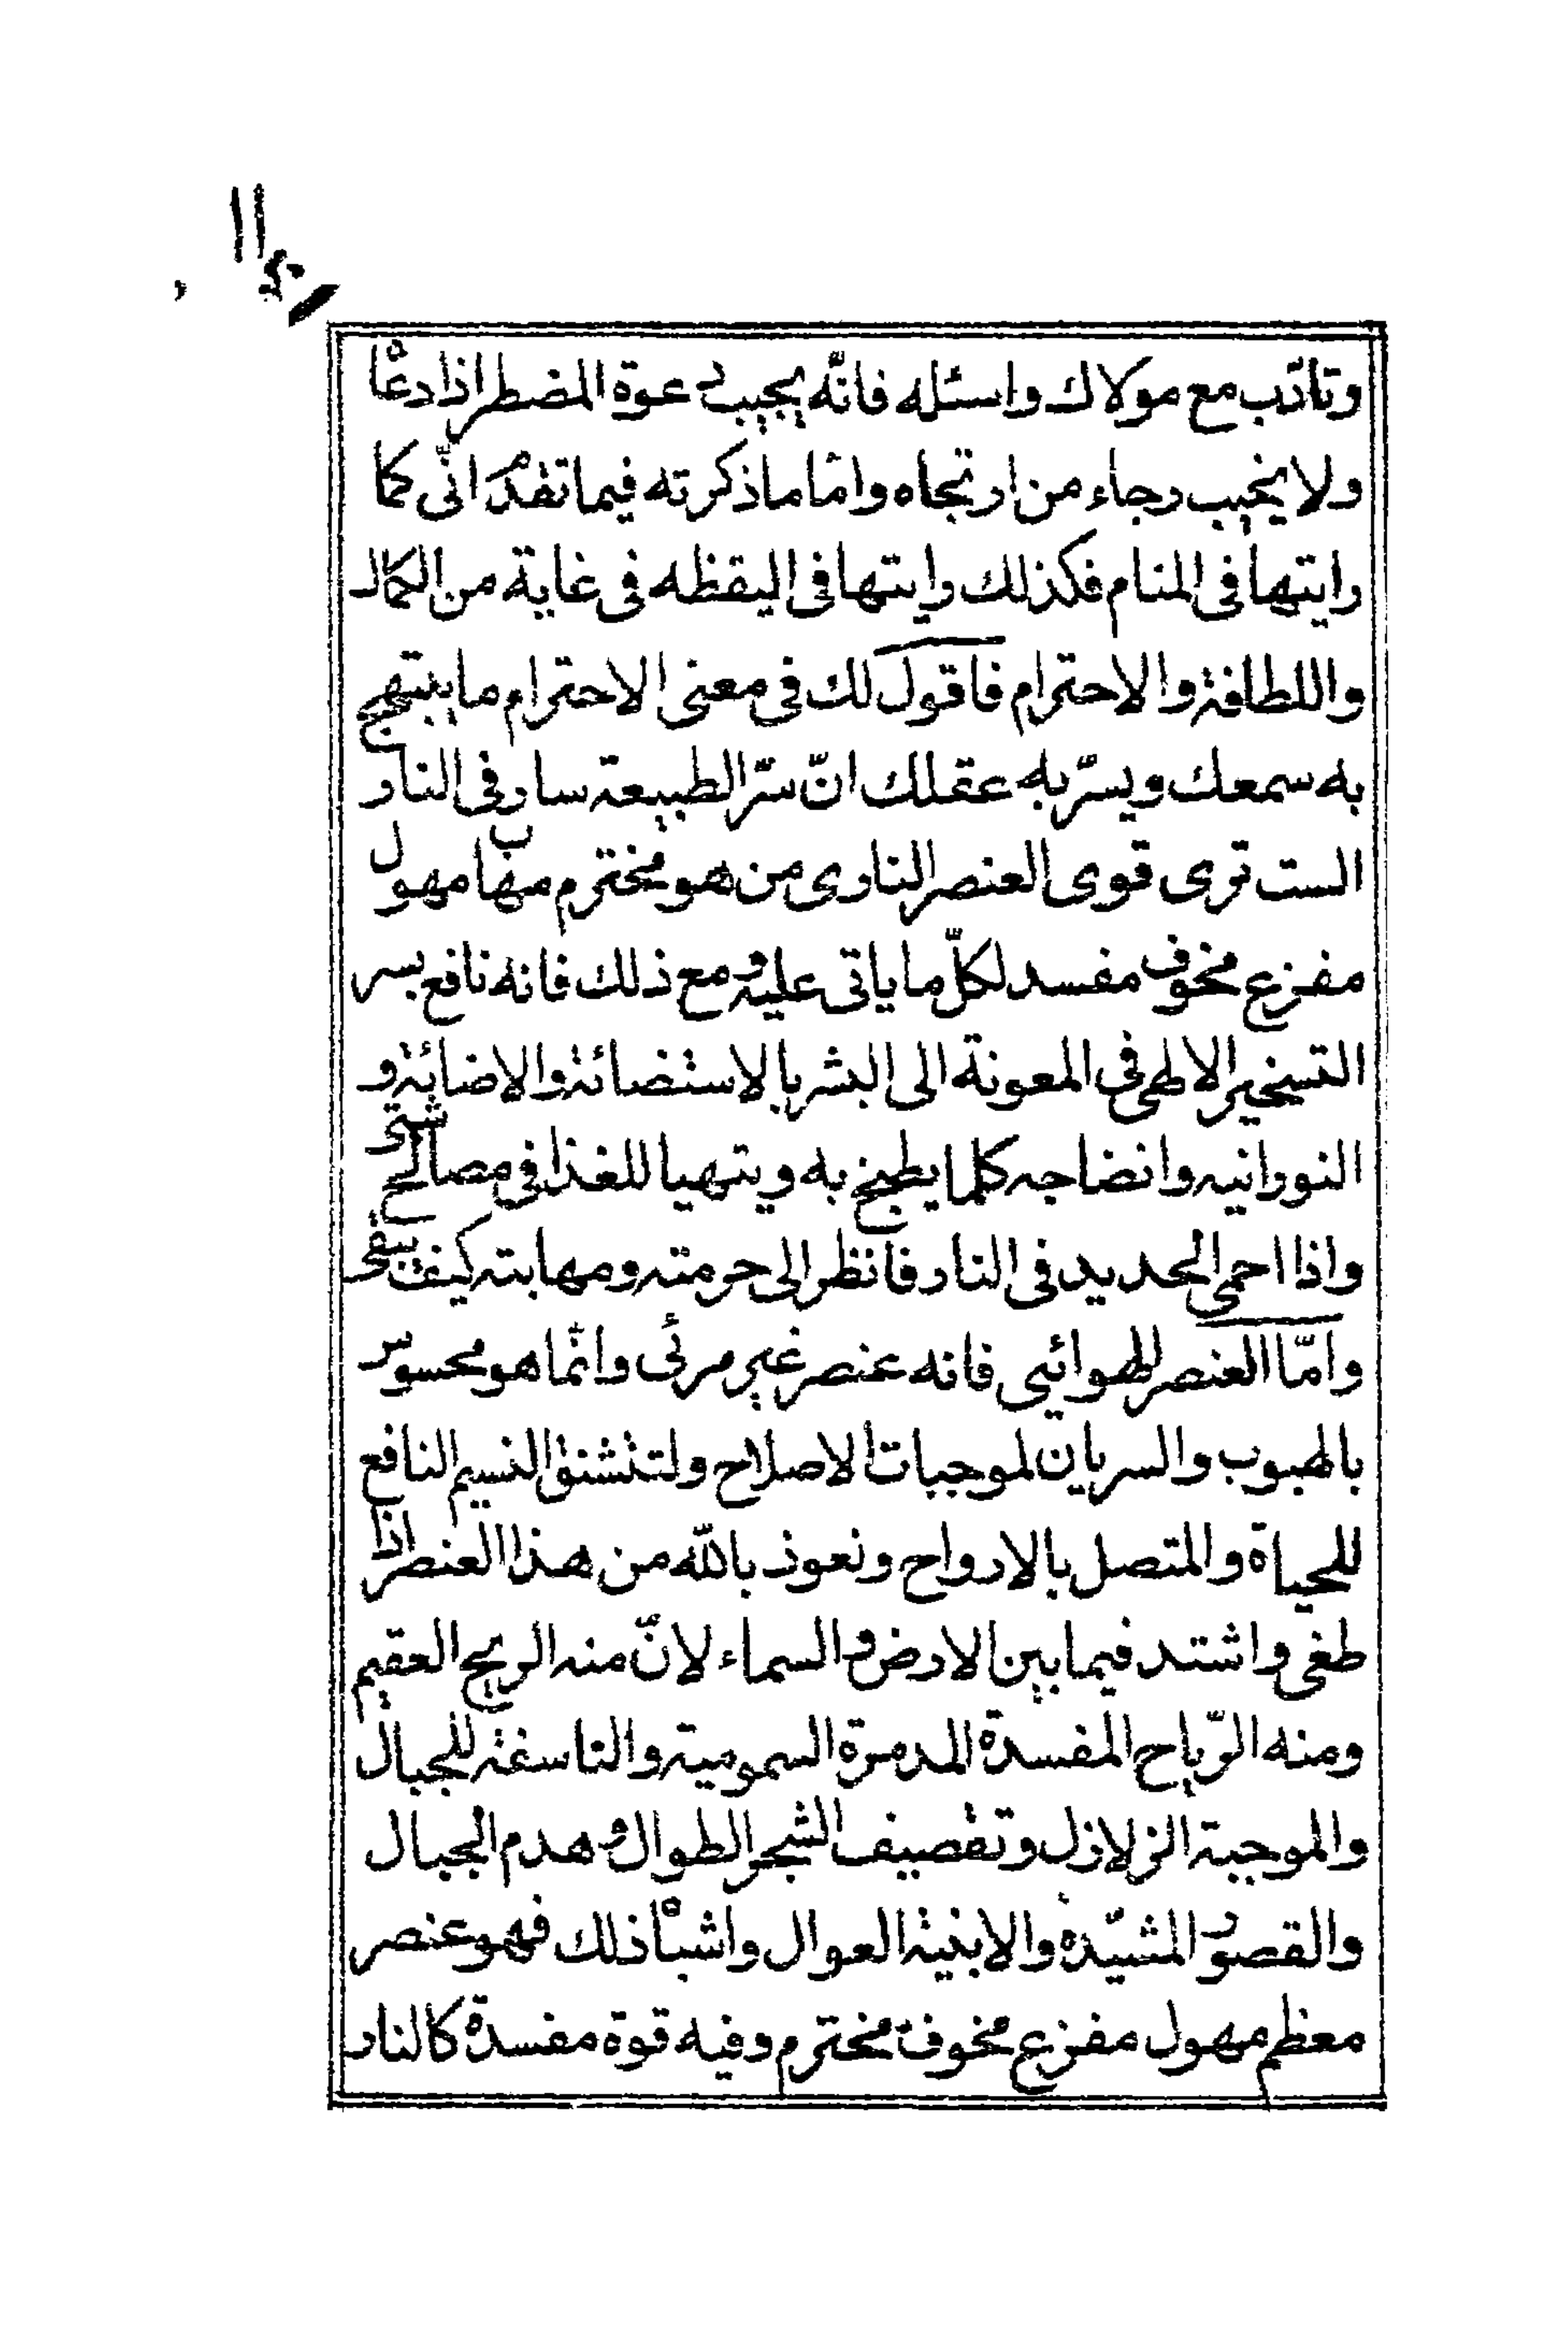 ١١
وتادّب مع مولاك واسئله فانّه يجيب دعوة المضطر اذا دعاه
ولا يخيب رجاء من ارتجاه وامّا ما ذكرته فيما تقدم انّى كما
رايتها فى المنام فكذلك رايتها فى اليقظه فى غاية من الكمال
واللطافة والاحترام فاقول لك فى معنى الاحترام ما يبتهج
به سمعك ويسرّ به عقلك انّ سرّ الطبيعة سار فى النار
الست ترى قوى العنصر النارى من هو محترم مهاب مهول
مفزع مخوف مفسد لكلّ ما ياتى عليه ومع ذلك فانه نافع بسر
التسخير الالهى فى المعونة الى البشر بالاستضائة والاضائة و
النورانيه وانضاجه كلما يطبخ به ويتهيا للغذا فى مصالح شتى
واذا احمى الحديد فى النار فانظر الى حرمته ومهابته كيف يبقى
وامّا العنصر الهوائيى فانه عنصر غير مرئى وانّما هو محسوس
بالهبوب والسريان لموجبات الاصلاح ولتنشق النسيم النافع
للحياة والمتصل بالارواح ونعوذ بالله من هذا العنصر اذا
طغى واشتد فيما بين الارض والسماء لانّ منه الريح العقيم
ومنه الرّياح المفسدة المدمرة السمومية والناسفة للجبال
والموجبة الزلازل وتقصيف الشجر الطوال وهدم الجبال
والقصور المشيّده والابنية العوال واشباه ذلك فهو عنصر
معظم مهول مفزع مخوف محترم وفيه قوة مفسدة كالنار